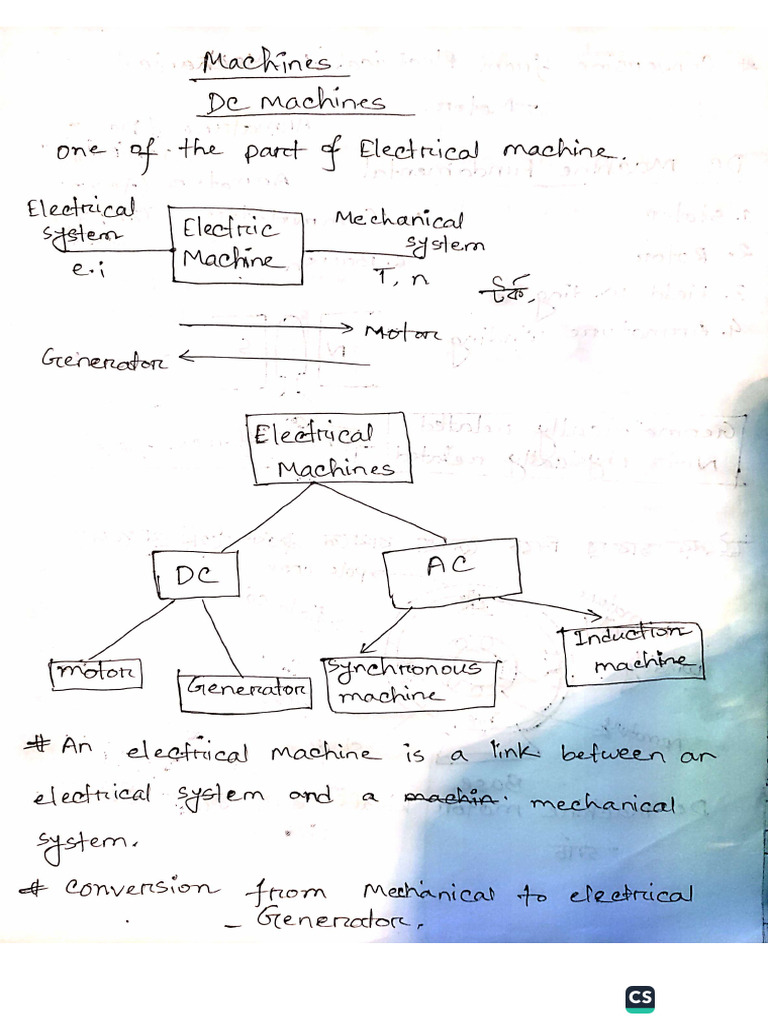 Machines
DC Machines
one of the part of Electrical machine.
Electrical
system
e.i
Electric
Machine
Mechanical
system
T, n
Motor
Generator
Electrical
Machines
DC
AC
Motor
Generator
Synchronous
machine
Induction
machine
# An electrical machine is a link between an
electrical system and a machin. mechanical
system.
# Conversion from Mechanical to electrical
- Generator.
CS